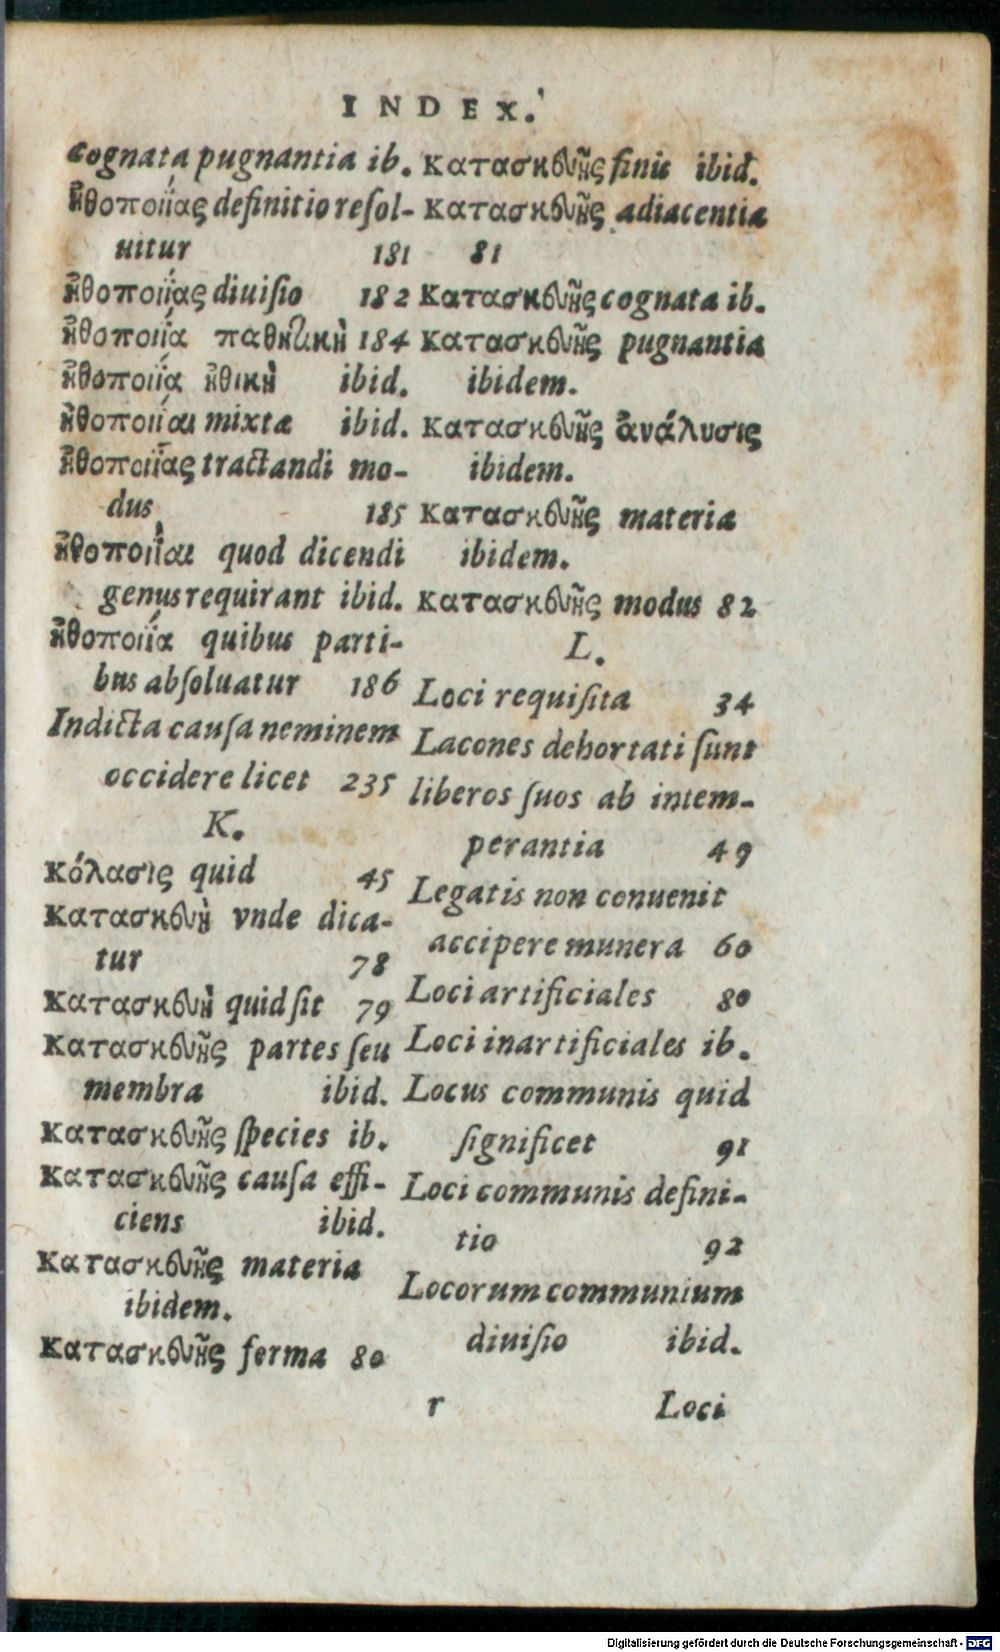 INDEX.
cognata pugnantia ib.
ἠθοποιΐας definitio resol-
uitur 181
ἠθοποιΐας diuisio 182
ἠθοποιΐα παθητικὴ 184
ἠθοποιΐα ἠθικὴ ibid.
ἠθοποιΐαι mixta ibid.
ἠθοποιΐας tractandi mo-
dus 185
ἠθοποιΐαι quod dicendi
genus requirant ibid.
ἠθοποιΐα quibus parti-
bus absoluatur 186
Indicta causa neminem
occidere licet 235
K.
κόλασις quid 45
κατασκευὴ vnde dica-
tur 78
κατασκευὴ quid sit 79
κατασκευῆς partes seu
membra ibid.
κατασκευῆς species ib.
κατασκευῆς causa effi-
ciens ibid.
κατασκευῆς materia
ibidem.
κατασκευῆς forma 80
κατασκευῆς finis ibid.
κατασκευῆς adiacentia
81
κατασκευῆς cognata ib.
κατασκευῆς pugnantia
ibidem.
κατασκευῆς ἀνάλυσις
ibidem.
κατασκευῆς materia
ibidem.
κατασκευῆς modus 82
L.
Loci requisita 34
Lacones dehortati sunt
liberos suos ab intem-
perantia 49
Legatis non conuenit
accipere munera 60
Loci artificiales 80
Loci inartificiales ib.
Locus communis quid
significet 91
Loci communis defini-
tio 92
Locorum communium
diuisio ibid.
r Loci
Digitalisierung gefördert durch die Deutsche Forschungsgemeinschaft - DFG